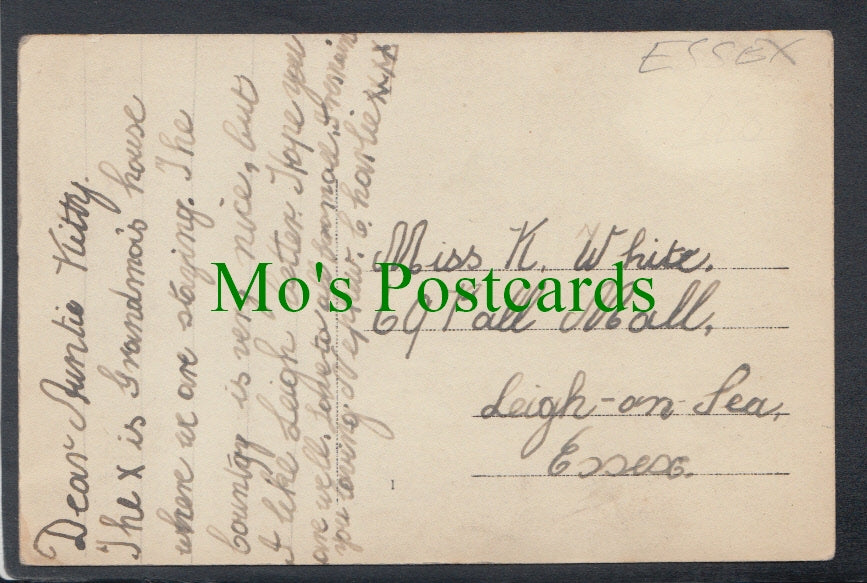 ESSEX
Dear Auntie Kitty.
The x is Grandma's house
where we are staying. The
Country is very nice, but
I like Leigh better. Hope you
are well. Love to Grandma
your loving Nephew. Charlie xxx
Miss K. White.
69 Pall Mall,
Leigh-on-Sea,
Essex.
Mo's Postcards